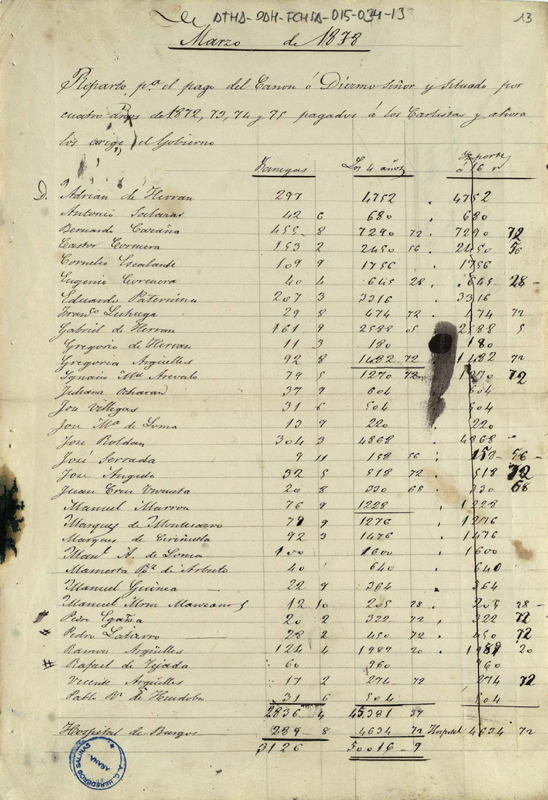 ATHA-DDH-FCHSA-015-034-13
13
Marzo de 1878
Reparto pa. el pago del Canon ó Diezmo Señor y Situado por
cuatro años de 1872, 73, 74 y 75 pagados á los Carlistas y ahora
los exige el Gobierno
Fanegas Los 4 años Importe á 16 r
D. Adrian de Herran 297 4752 . 4752
Antonio Salazar 42 6 680 . 680
Bernardo 455 - 8 7290 72 . 7290 72
Castor Corcuera 153 2 2450 56 . 2450 56
Cornelio Escalante 109 9 1756 1756
Eugenio Corcuera 40 4 645 28 . 645 28 -
Eduardo Paternina 207 3 3316 3316
Franco. Lechuga 29 8 474 72 . 474 72
Gabriel de Herran 161 9 2588 05 2588 5
Gregorio de Herran 11 3 180 180
Gregoria Argüelles 92 8 1482 72 1482 72
Ignacio Ma. Arevalo 79 5 1270 72 1270 72
Juliana 37 9 604 604
Jose Villegas 31 6 504 504
Jose Ma. de Loma 13 9 220 220
Jose Roldan 304 3 4868 4868
José Serrada 9 11 158 56 158 56 -
José Angulo 32 5 518 72 . 518 72
Juan Cruz 20 8 330 68 . 330 68
Manuel Marron 76 9 1228 . 1228
Marques de Montesacro 79 9 1276 1276
Marques de Ciriñuela 92 3 1476 1476
Manl. A. de Loma 100 1600 1600
Mamerta 40 640 . 640
Manuel Guinea 22 9 364 364
Manuel Mom Manzanos 12 10 205 28 . 205 28 -
# Pedro Egaña 20 2 322 72 , 322 72
Pedro Labarro 28 2 450 72 . 450 72
# Ramon Argüelles 124 4 1989 20 1989 20
Rafael de Tejada 60 960 960
Vicente Argüelles 17 2 274 - 72 274 72
Pablo 31 6 504 504
2836 4 45381 37
Hospital de Burgos 289 - 8 4634 72 Hospital 4634 72
3126 50016 - 9
A. C. HEREDEROS SALINAS
ARANA